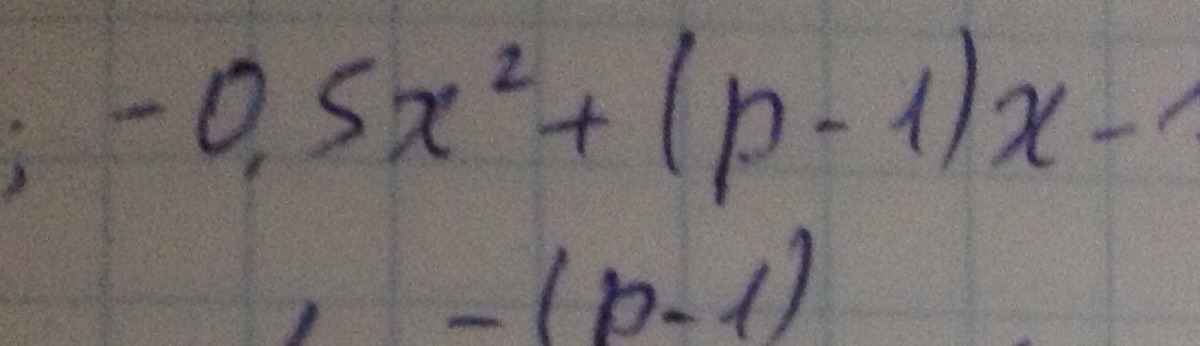 ; -0,5x² + (p - 1)x -
-(p-1)